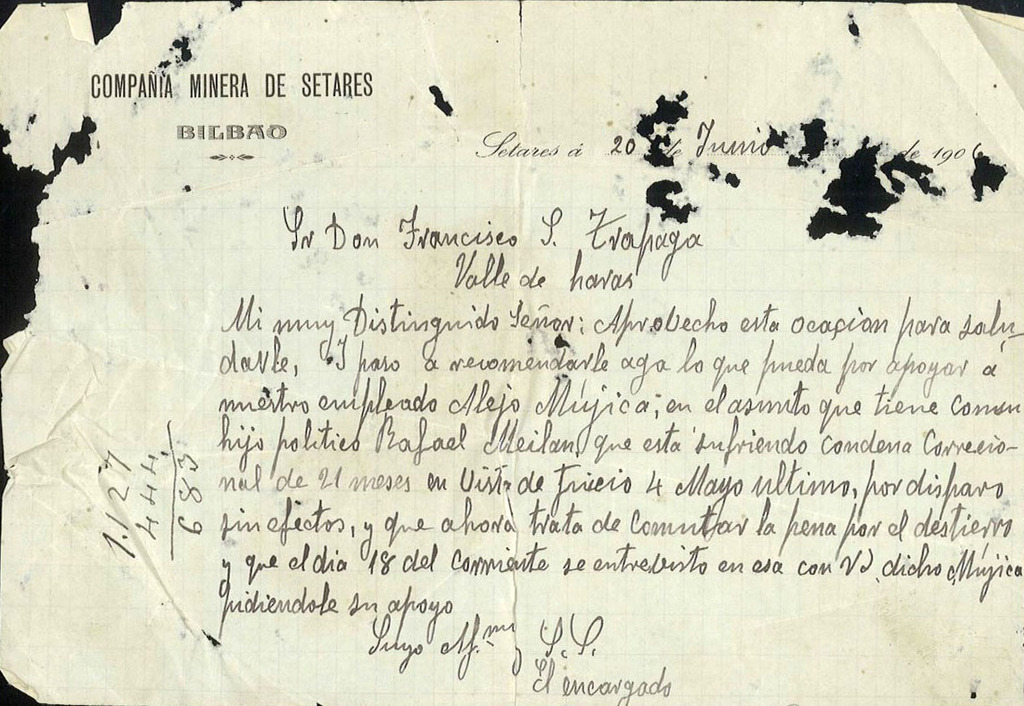 COMPAÑIA MINERA DE SETARES
BILBAO
Setares á 20 de Junio de 1906
Sr Don Francisco S. Trapaga
Valle de haras
Mi muy Distinguido Señor: Aprobecho esta ocacion para salu-
darle, Y paso a recomendarle aga lo que pueda por apoyar á
nuestro empleado Alejo Mújica; en el asunto que tiene con un
hijo politico Rafael Meilan, que esta sufriendo condena Correcio-
nal de 21 meses en Vista de Juicio 4 Mayo ultimo, por disparo
sin efectos, y que ahora trata de Comutar la pena por el destierro
y que el dia 18 del corriente se entrebisto en esa con Vd, dicho Mújica
pidiendole su apoyo
Suyo Af.mo y S.S.
El encargado
1.127
444
683